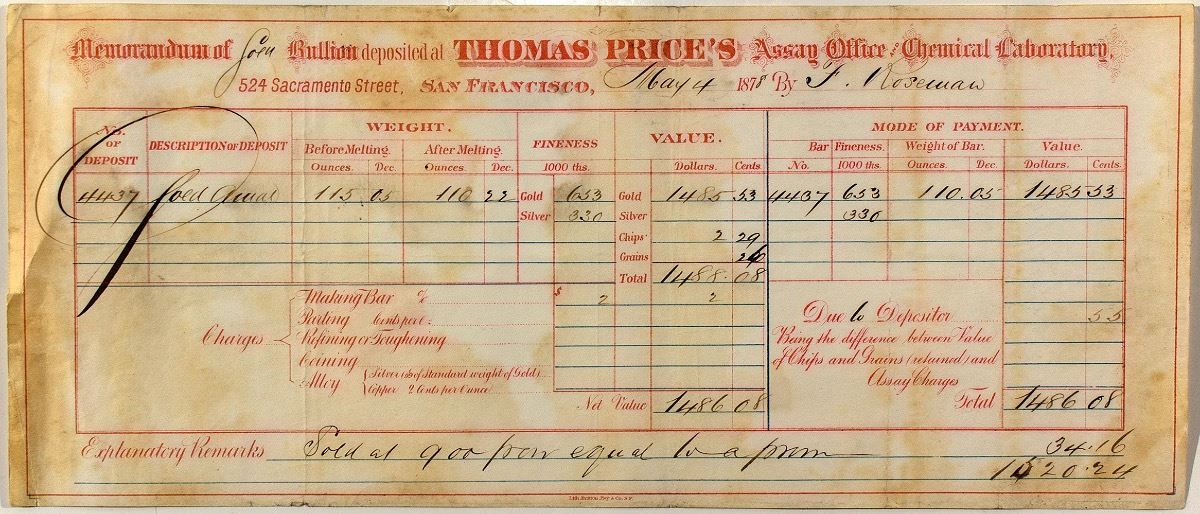 Memorandum of Gold Bullion deposited at THOMAS PRICE'S Assay Office and Chemical Laboratory
524 Sacramento Street, SAN FRANCISCO, May 4 1878 By F. Roseman
No. OF DEPOSIT DESCRIPTION OF DEPOSIT WEIGHT. FINENESS VALUE. MODE OF PAYMENT.
Before Melting. After Melting. Bar Fineness. Weight of Bar. Value.
Ounces. Dec. Ounces. Dec. 1000 ths. Dollars. Cents. No. 1000 ths. Ounces. Dec. Dollars. Cents.
4437 115 05 110 22 Gold 653 Gold 1485 53 4437 653 110.05 1485 53
Silver 330 Silver 330
Chips 2 29
Grains 26
Total 1488.08
Making Bar % $ 2 2
Parting Cents per Oz. Due to Depositor 55
Charges Refining or Toughening Being the difference between Value
Coining of Chips and Grains (retained) and
Alloy Silver of Standard weight of Gold) Assay Charges
Copper 2 Cents per Ounce
Net Value 1486 08 Total 1486 08
Explanatory Remarks Sold at 900 equal to a prem 34.16
1520.24
Lith. Britton, Rey & Co. S.F.